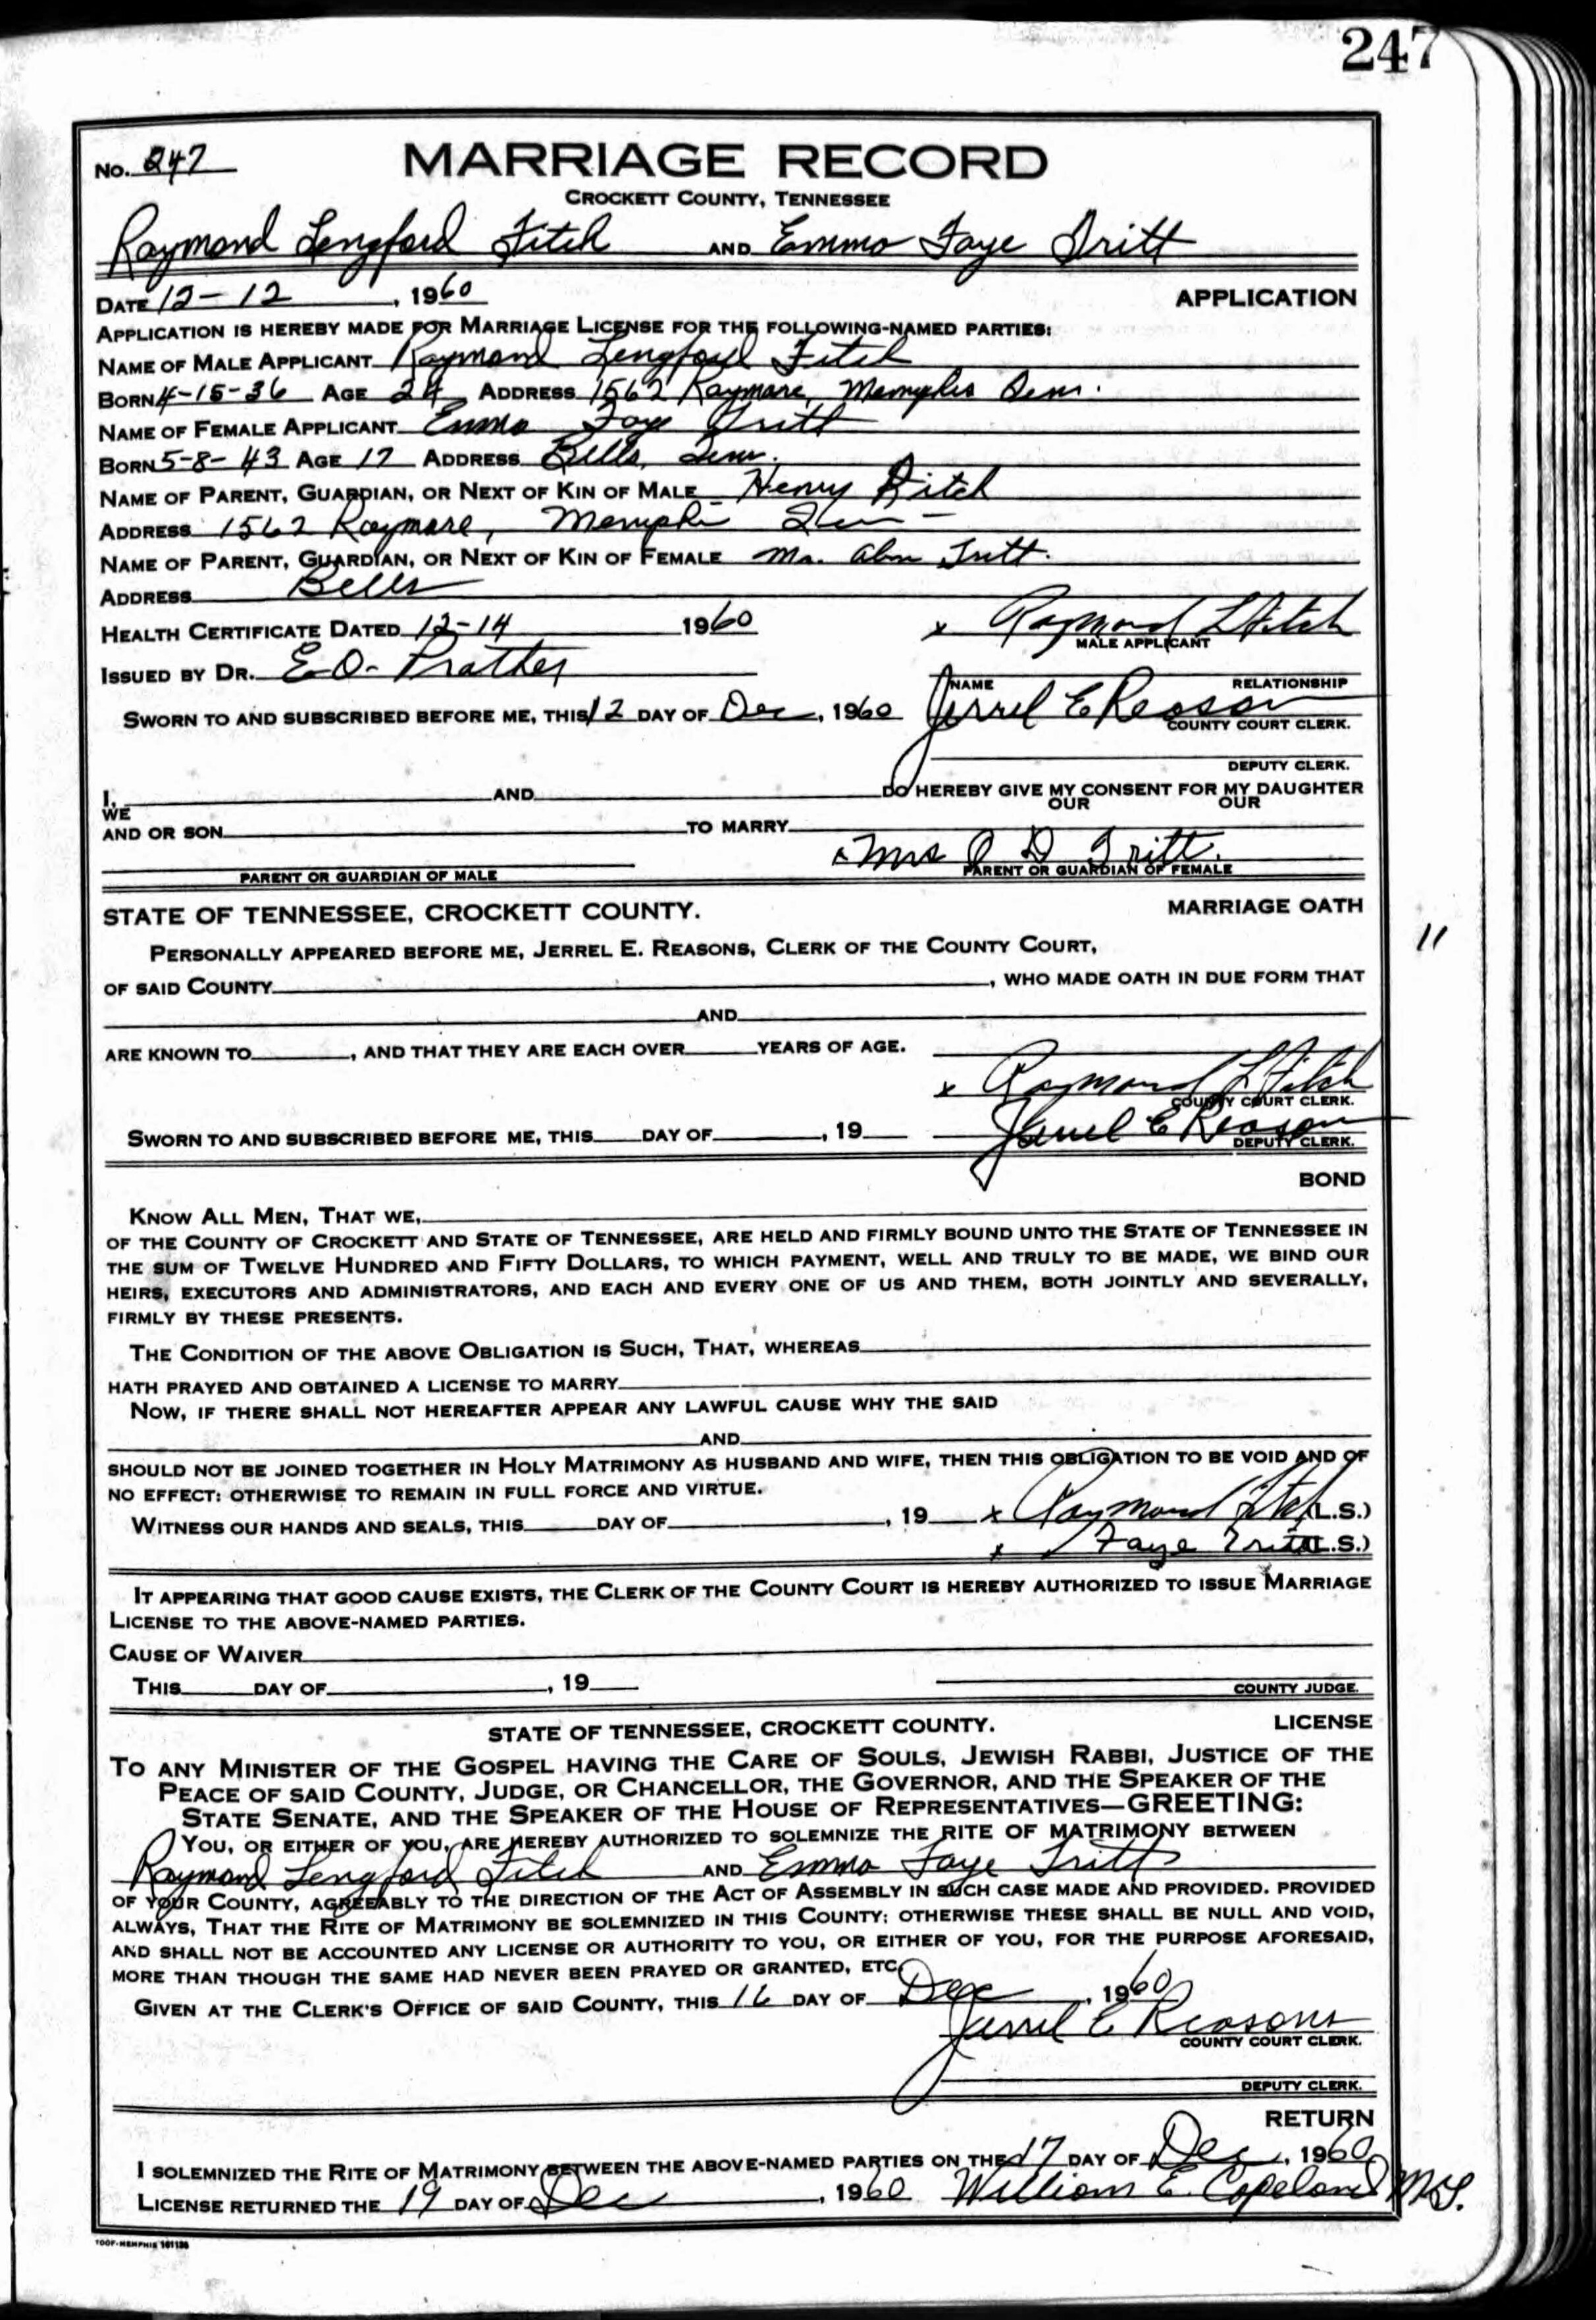 247
No. 247 MARRIAGE RECORD
CROCKETT COUNTY, TENNESSEE
Raymond Lengford Fitch AND Emma Faye Tritt
DATE 12-12, 1960 APPLICATION
APPLICATION IS HEREBY MADE FOR MARRIAGE LICENSE FOR THE FOLLOWING-NAMED PARTIES:
NAME OF MALE APPLICANT Raymond Lengford Fitch
BORN 4-15-36 AGE 24 ADDRESS 1562 Raymare, Memphis Tenn.
NAME OF FEMALE APPLICANT Emma Faye Tritt
BORN 5-8-43 AGE 17 ADDRESS Bells, Tenn.
NAME OF PARENT, GUARDIAN, OR NEXT OF KIN OF MALE Henry Fitch
ADDRESS 1562 Raymare, Memphis Tenn
NAME OF PARENT, GUARDIAN, OR NEXT OF KIN OF FEMALE Tritt.
ADDRESS Bells
HEALTH CERTIFICATE DATED 12-14 1960 x Raymond L Fitch
MALE APPLICANT
ISSUED BY DR. E.O. Prather
NAME RELATIONSHIP
SWORN TO AND SUBSCRIBED BEFORE ME, THIS 12 DAY OF Dec, 1960 Jerrel E Reasons
COUNTY COURT CLERK.
DEPUTY CLERK.
I, AND DO HEREBY GIVE MY CONSENT FOR MY DAUGHTER
WE OUR OUR
AND OR SON TO MARRY
x Mrs O D Tritt.
PARENT OR GUARDIAN OF MALE PARENT OR GUARDIAN OF FEMALE
STATE OF TENNESSEE, CROCKETT COUNTY. MARRIAGE OATH
PERSONALLY APPEARED BEFORE ME, JERREL E. REASONS, CLERK OF THE COUNTY COURT, 11
OF SAID COUNTY, WHO MADE OATH IN DUE FORM THAT
AND
ARE KNOWN TO, AND THAT THEY ARE EACH OVER YEARS OF AGE.
x Raymond L Fitch
COUNTY COURT CLERK.
SWORN TO AND SUBSCRIBED BEFORE ME, THIS DAY OF, 19 Jerrel E Reasons
DEPUTY CLERK.
BOND
KNOW ALL MEN, THAT WE,
OF THE COUNTY OF CROCKETT AND STATE OF TENNESSEE, ARE HELD AND FIRMLY BOUND UNTO THE STATE OF TENNESSEE IN
THE SUM OF TWELVE HUNDRED AND FIFTY DOLLARS, TO WHICH PAYMENT, WELL AND TRULY TO BE MADE, WE BIND OUR
HEIRS, EXECUTORS AND ADMINISTRATORS, AND EACH AND EVERY ONE OF US AND THEM, BOTH JOINTLY AND SEVERALLY,
FIRMLY BY THESE PRESENTS.
THE CONDITION OF THE ABOVE OBLIGATION IS SUCH, THAT, WHEREAS
HATH PRAYED AND OBTAINED A LICENSE TO MARRY
NOW, IF THERE SHALL NOT HEREAFTER APPEAR ANY LAWFUL CAUSE WHY THE SAID
AND
SHOULD NOT BE JOINED TOGETHER IN HOLY MATRIMONY AS HUSBAND AND WIFE, THEN THIS OBLIGATION TO BE VOID AND OF
NO EFFECT: OTHERWISE TO REMAIN IN FULL FORCE AND VIRTUE.
WITNESS OUR HANDS AND SEALS, THIS DAY OF, 19 x Raymond Fitch (L.S.)
x Faye Tritt (L.S.)
IT APPEARING THAT GOOD CAUSE EXISTS, THE CLERK OF THE COUNTY COURT IS HEREBY AUTHORIZED TO ISSUE MARRIAGE
LICENSE TO THE ABOVE-NAMED PARTIES.
CAUSE OF WAIVER
THIS DAY OF, 19
COUNTY JUDGE.
STATE OF TENNESSEE, CROCKETT COUNTY. LICENSE
TO ANY MINISTER OF THE GOSPEL HAVING THE CARE OF SOULS, JEWISH RABBI, JUSTICE OF THE
PEACE OF SAID COUNTY, JUDGE, OR CHANCELLOR, THE GOVERNOR, AND THE SPEAKER OF THE
STATE SENATE, AND THE SPEAKER OF THE HOUSE OF REPRESENTATIVES—GREETING:
YOU, OR EITHER OF YOU, ARE HEREBY AUTHORIZED TO SOLEMNIZE THE RITE OF MATRIMONY BETWEEN
Raymond Lengford Fitch AND Emma Faye Tritt
OF YOUR COUNTY, AGREEABLY TO THE DIRECTION OF THE ACT OF ASSEMBLY IN SUCH CASE MADE AND PROVIDED. PROVIDED
ALWAYS, THAT THE RITE OF MATRIMONY BE SOLEMNIZED IN THIS COUNTY; OTHERWISE THESE SHALL BE NULL AND VOID,
AND SHALL NOT BE ACCOUNTED ANY LICENSE OR AUTHORITY TO YOU, OR EITHER OF YOU, FOR THE PURPOSE AFORESAID,
MORE THAN THOUGH THE SAME HAD NEVER BEEN PRAYED OR GRANTED, ETC.
GIVEN AT THE CLERK'S OFFICE OF SAID COUNTY, THIS 16 DAY OF Dec, 1960
Jerrel E Reasons
COUNTY COURT CLERK.
DEPUTY CLERK.
RETURN
I SOLEMNIZED THE RITE OF MATRIMONY BETWEEN THE ABOVE-NAMED PARTIES ON THE 17 DAY OF Dec, 1960
LICENSE RETURNED THE 19 DAY OF Dec, 1960 William E. Copeland M.G.
TOOF-MEMPHIS 161136